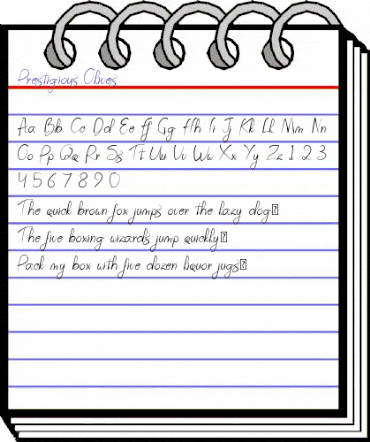 Prestigious Olives
Aa Bb Cc Dd Ee Ff Gg Hh Ii Jj Kk Ll Mm Nn
Oo Pp Qq Rr Ss Tt Uu Vv Ww Xx Yy Zz 1 2 3
4 5 6 7 8 9 0
The quick brown fox jumps over the lazy dog
The five boxing wizards jump quickly
Pack my box with five dozen liquor jugs